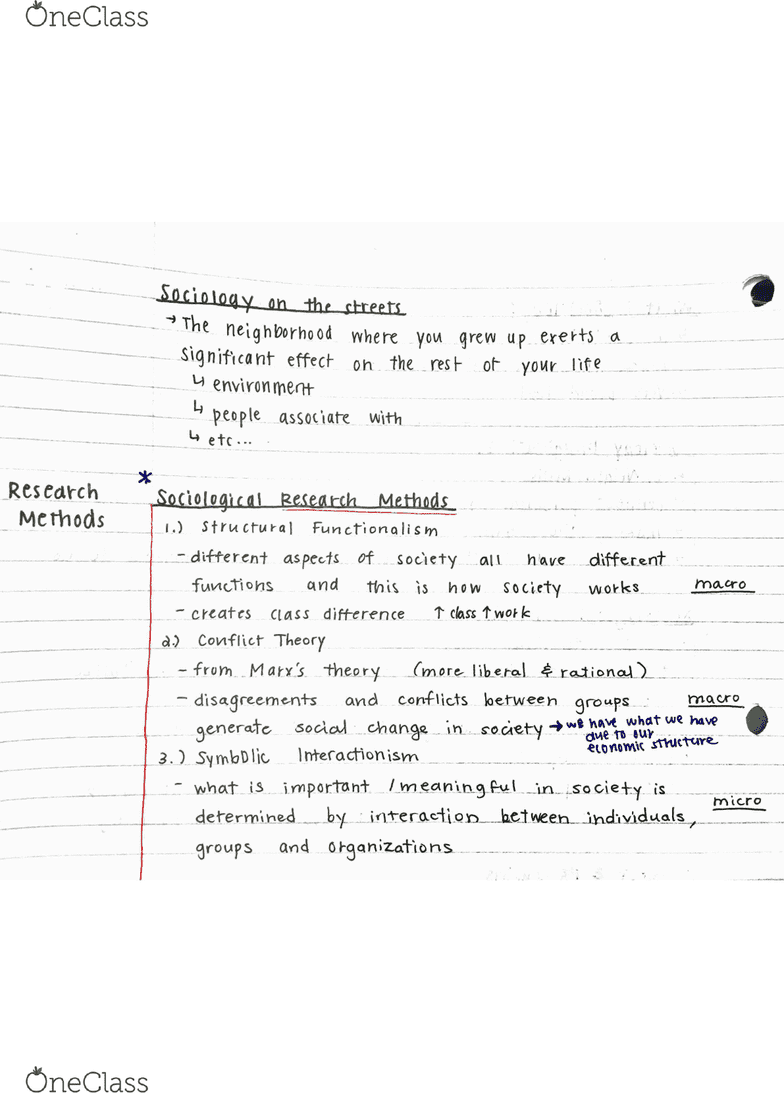 OneClass
Sociology on the streets
→ The neighborhood where you grew up exerts a
significant effect on the rest of your life
↳ environment
↳ people associate with
↳ etc...
Research
Methods
*
Sociological Research Methods
1.) Structural Functionalism
- different aspects of society all have different
functions and this is how society works macro
- creates class difference ↑ class ↑ work
2.) Conflict Theory
- from Marx's theory (more liberal & rational)
- disagreements and conflicts between groups macro
generate social change in society → we have what we have
due to our
economic structure
3.) Symbolic Interactionism
- what is important / meaningful in society is
micro
determined by interaction between individuals,
groups and organizations
OneClass